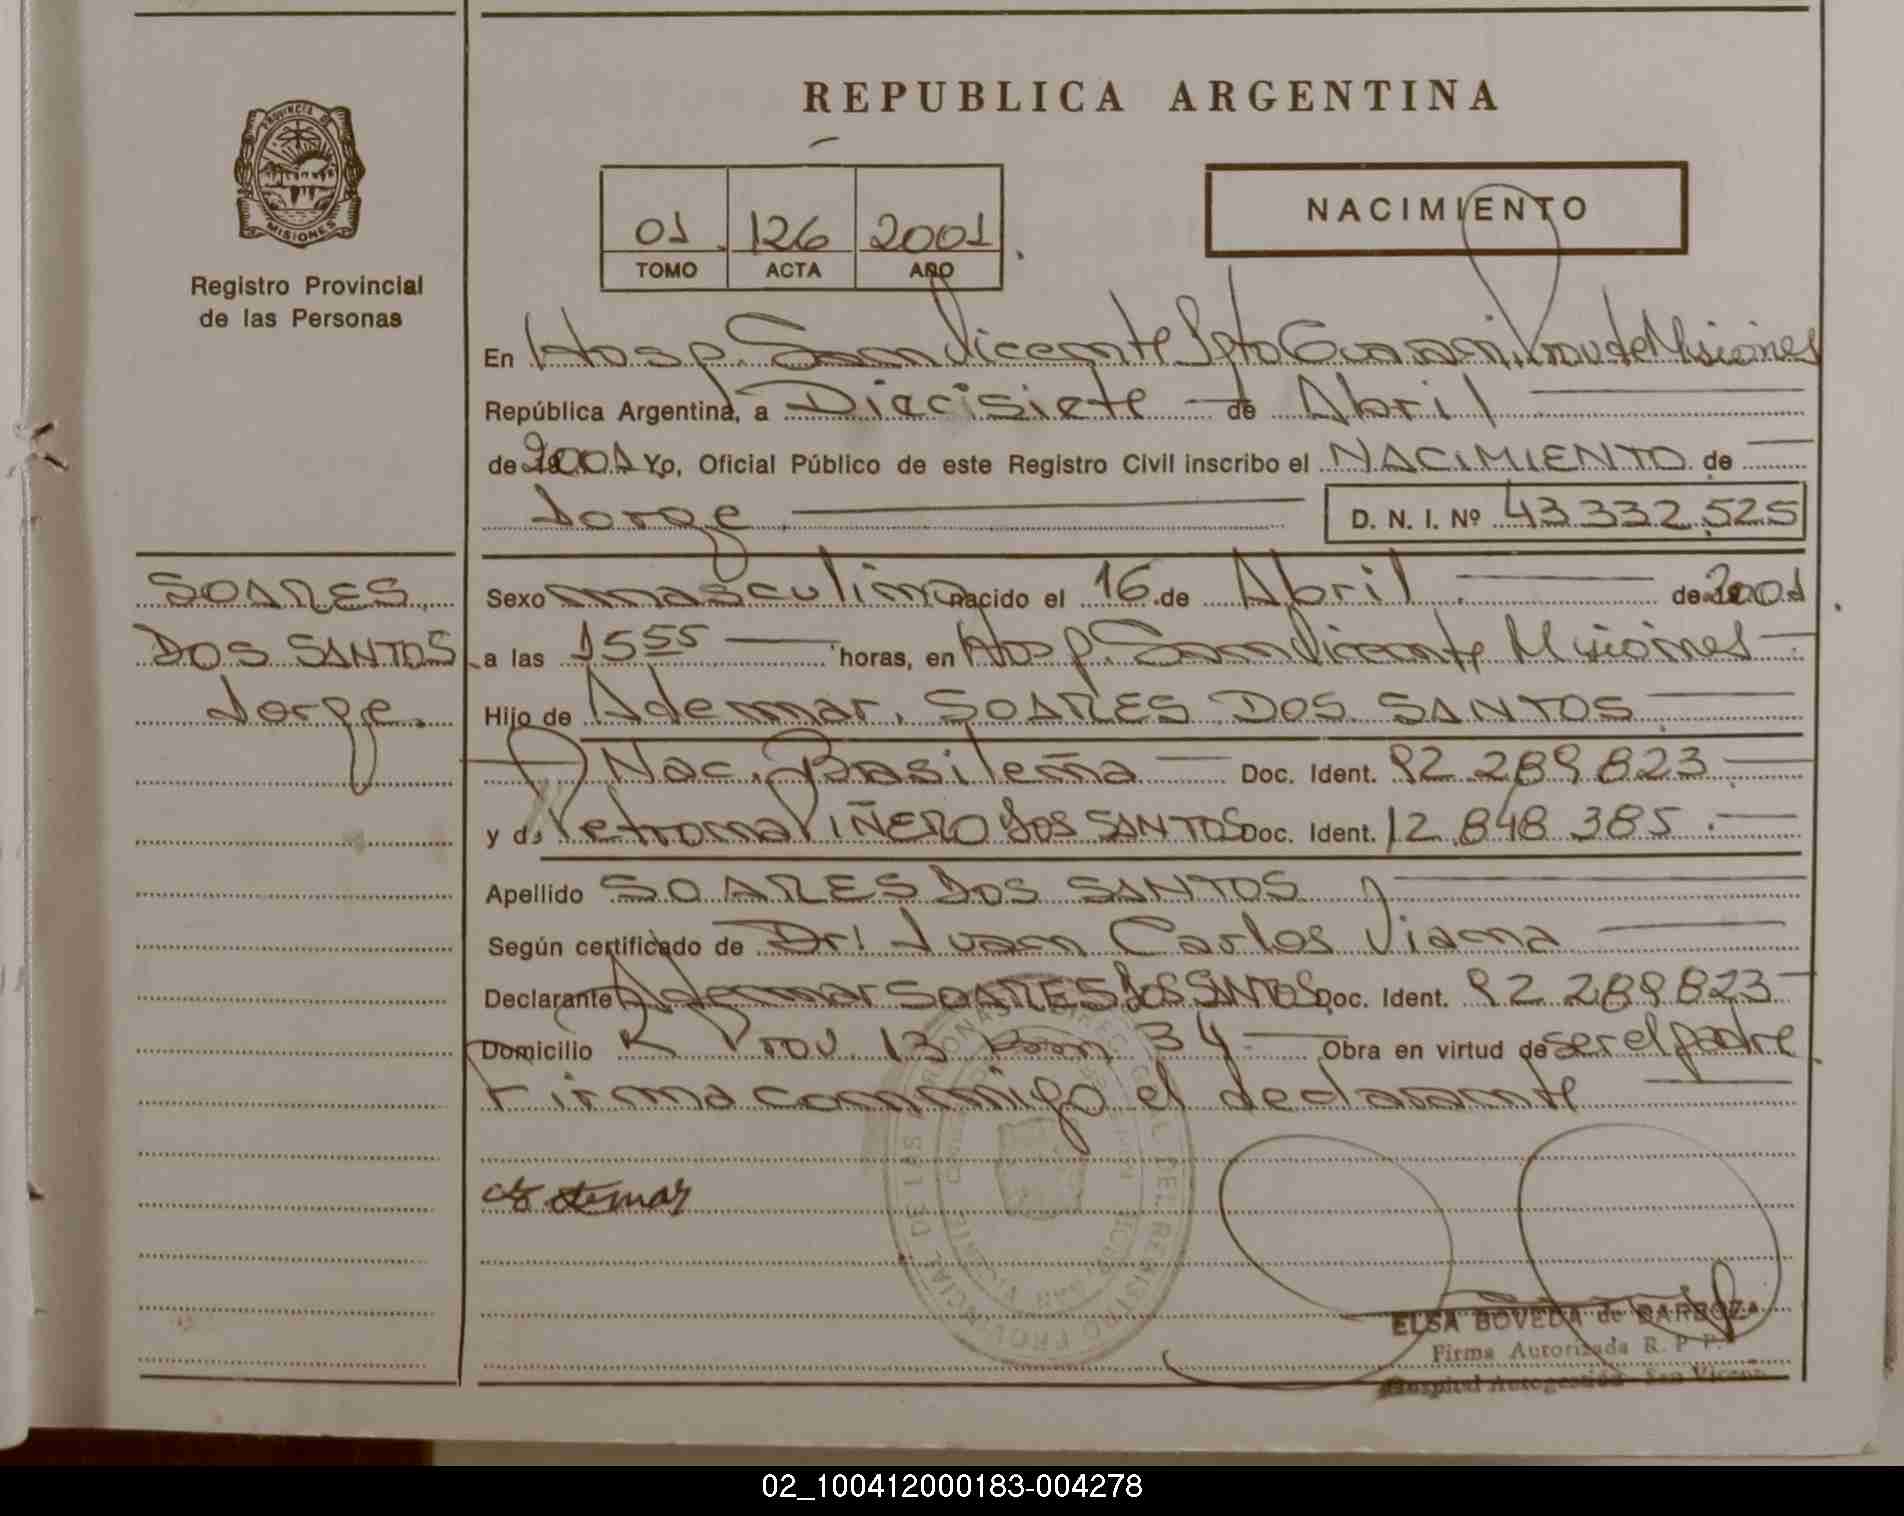 REPUBLICA ARGENTINA
PROVINCIA DE
MISIONES
Registro Provincial
de las Personas
01 126 2001
TOMO ACTA AÑO
NACIMIENTO
En Hosp. San Vicente Dpto Guarani Prov de Misiones
República Argentina, a Diecisiete de Abril
de 2001 Yo, Oficial Público de este Registro Civil inscribo el NACIMIENTO de
Jorge D. N. I. Nº 43 332 525
SOARES
DOS SANTOS
Jorge.
Sexo masculino nacido el 16 de Abril de 2001
a las 15 55 horas, en Hosp. San Vicente Misiones
Hijo de Ademar. SOARES DOS SANTOS
Nac. Basileña Doc. Ident. 92 289 823
y de Petrona PIÑERO DOS SANTOS Doc. Ident. 12 848 385.
Apellido SOARES DOS SANTOS
Según certificado de Dr! Juan Carlos Viana
Declarante Ademar SOARES DOS SANTOS Doc. Ident. 92 289 823
Domicilio R Prov. 13 Km 34 Obra en virtud de ser el padre
Firma conmigo el declarante
ELSA BOVEDA de BARBOZA
Firma Autorizada R. P. P.
Hospital Autogestión San Vicente
02_100412000183-004278